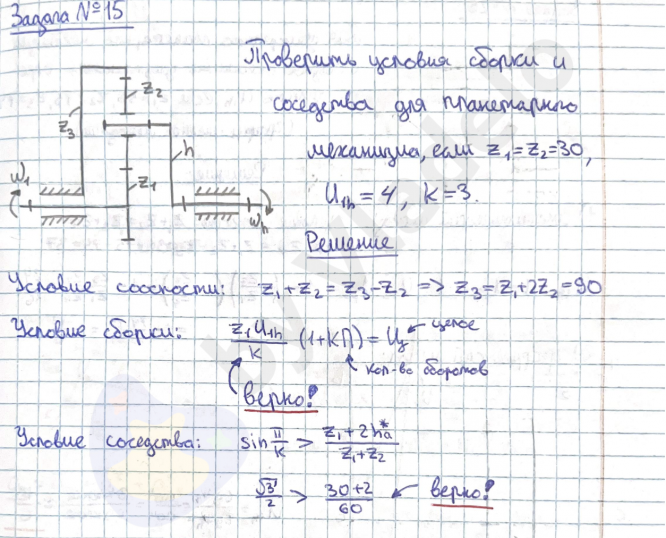 Задача №15
Проверить условия сборки и
соседства для планетарного
механизма, если z₁=z₂=30,
U₁ₕ=4, k=3.
z₂
z₃
h
ω₁
z₁
ωₕ
Решение
Условие соосности: z₁+z₂=z₃-z₂ => z₃=z₁+2z₂=90
Условие сборки: z₁U₁ₕ/k (1+kП)=Ц ← целое
кол-во оборотов
верно!
Условие соседства: sin π/k > (z₁+2hₐ*)/(z₁+z₂)
√3/2 > (30+2)/60 ← верно!